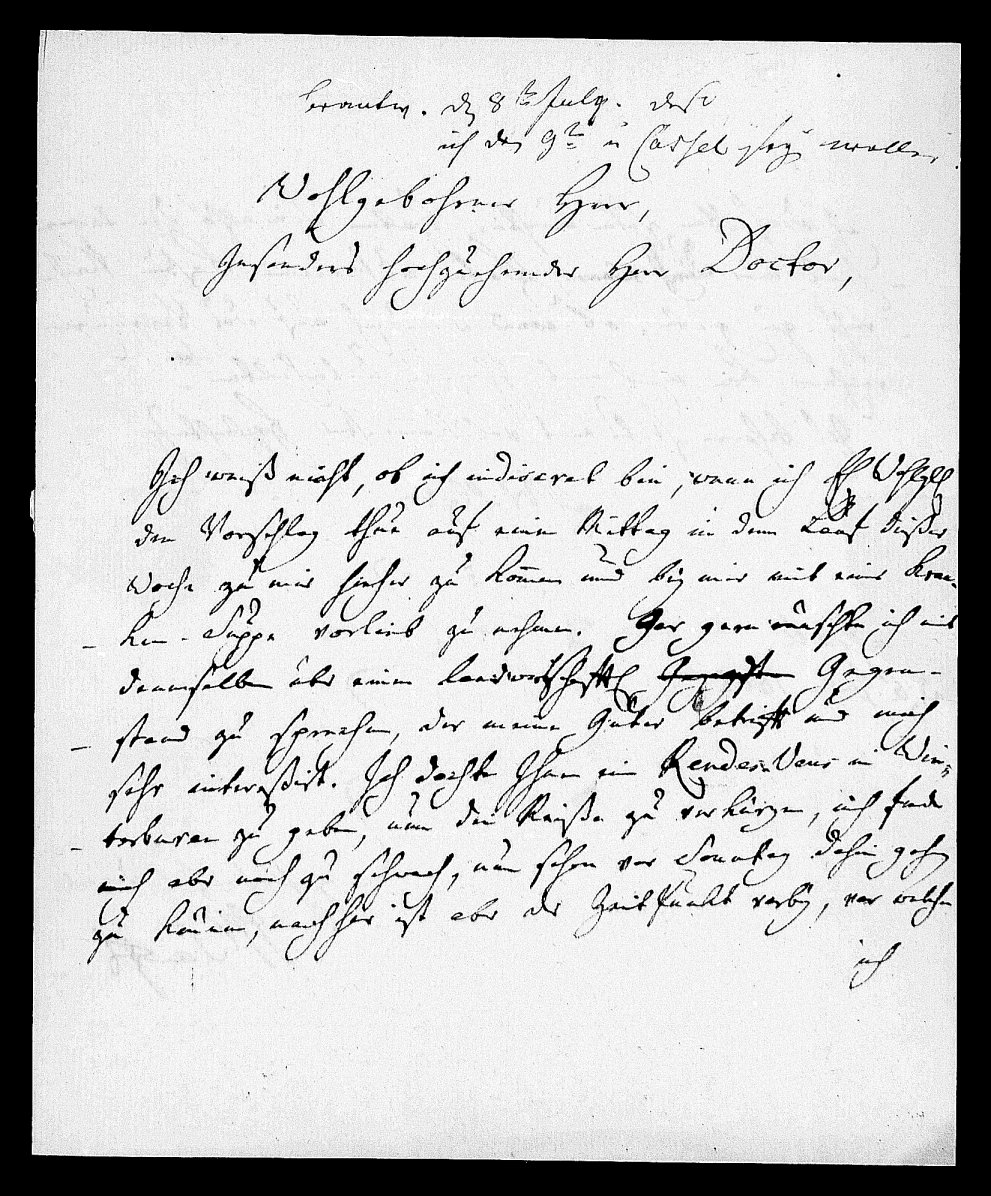 beantw. d 8t July. daß
ich den 9t in Cassel seyn wolle.
Wohlgebohrner Herr,
Besonders hochzuehrender Herr Doctor,
Ich weiß nicht, ob ich indiscret bin, wenn ich Ew Wohlgb
den Vorschlag thue auf einen Mittag in dem Lauf dieser
Woche zu mir hieher zu kommen und bey mir mit einer Kran-
ken-Suppe vorlieb zu nehmen. Gar gern wünschte ich mit
denenselben über einen landwirthschaftl Gegen-
stand zu sprechen, der meine Güter betrifft und mich
sehr interessirt. Ich dachte Ihnen ein Rendes-Vous in Win-
terburen zu geben, um die Reiße zu verkürzen, ich finde
mich aber noch zu schwach, um schon vor Sonntag dahin gehen
zu können, nachher ist aber der Zeitpunkt vorbey, vor welchen
ich